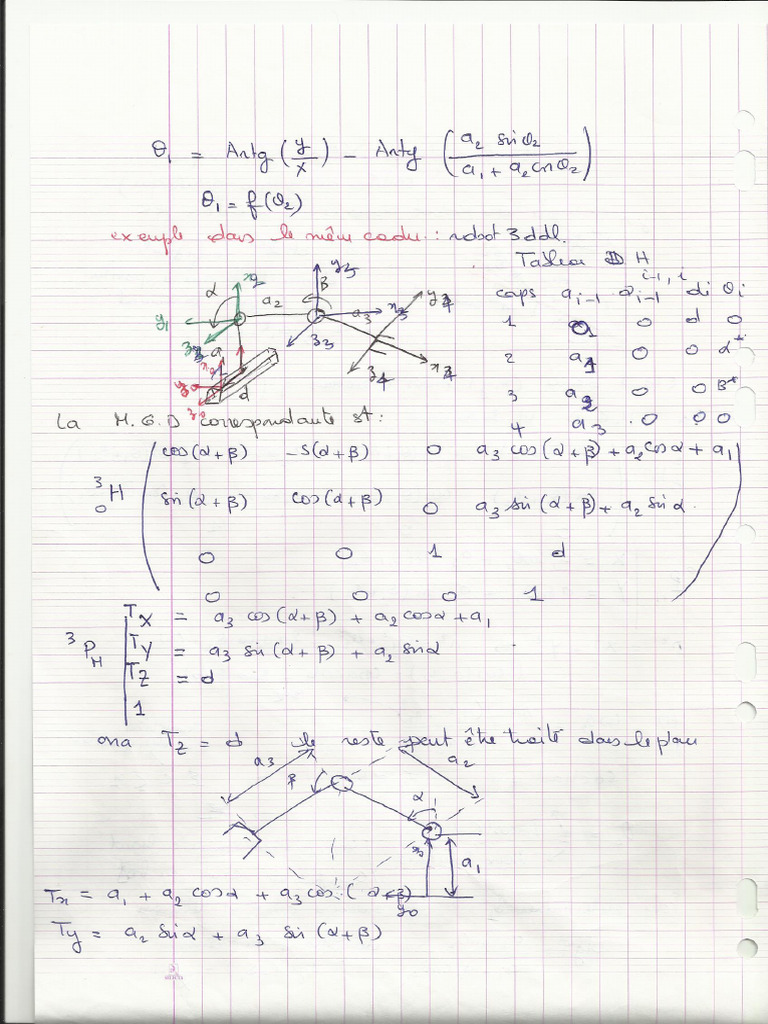 θ₁ = Artg (y/x) − Artg (a₂ sin θ₂ / (a₁ + a₂ cos θ₂))
θ₁ = f(θ₂)
exemple dans le même cadre : robot 3 ddl.
Tableau D H
corps a i-1 α i-1 i-1, i di θi
1 a₁ 0 d 0
2 a₁ 0 0 α*
3 a₂ 0 0 β*
4 a₃ 0 0 0
α x₂ a₂ β y₃ a₃ x₃ y₄
y₁ z₃ z₄ x₄
y₀ z₀ d
La M.G.D correspondante st :
³₀H
cos(α+β) −s(α+β) 0 a₃ cos(α+β) + a₂ cosα + a₁
sin(α+β) cos(α+β) 0 a₃ sin(α+β) + a₂ sinα
0 0 1 d
0 0 0 1
³P_H
Tx = a₃ cos(α+β) + a₂ cosα + a₁
Ty = a₃ sin(α+β) + a₂ sinα
Tz = d
1
ona Tz = d le reste peut être traité dans le plan
a₃ β a₂
α
x₀ a₁
y₀
Tx = a₁ + a₂ cosα + a₃ cos(α+β)
Ty = a₂ sinα + a₃ sin(α+β)